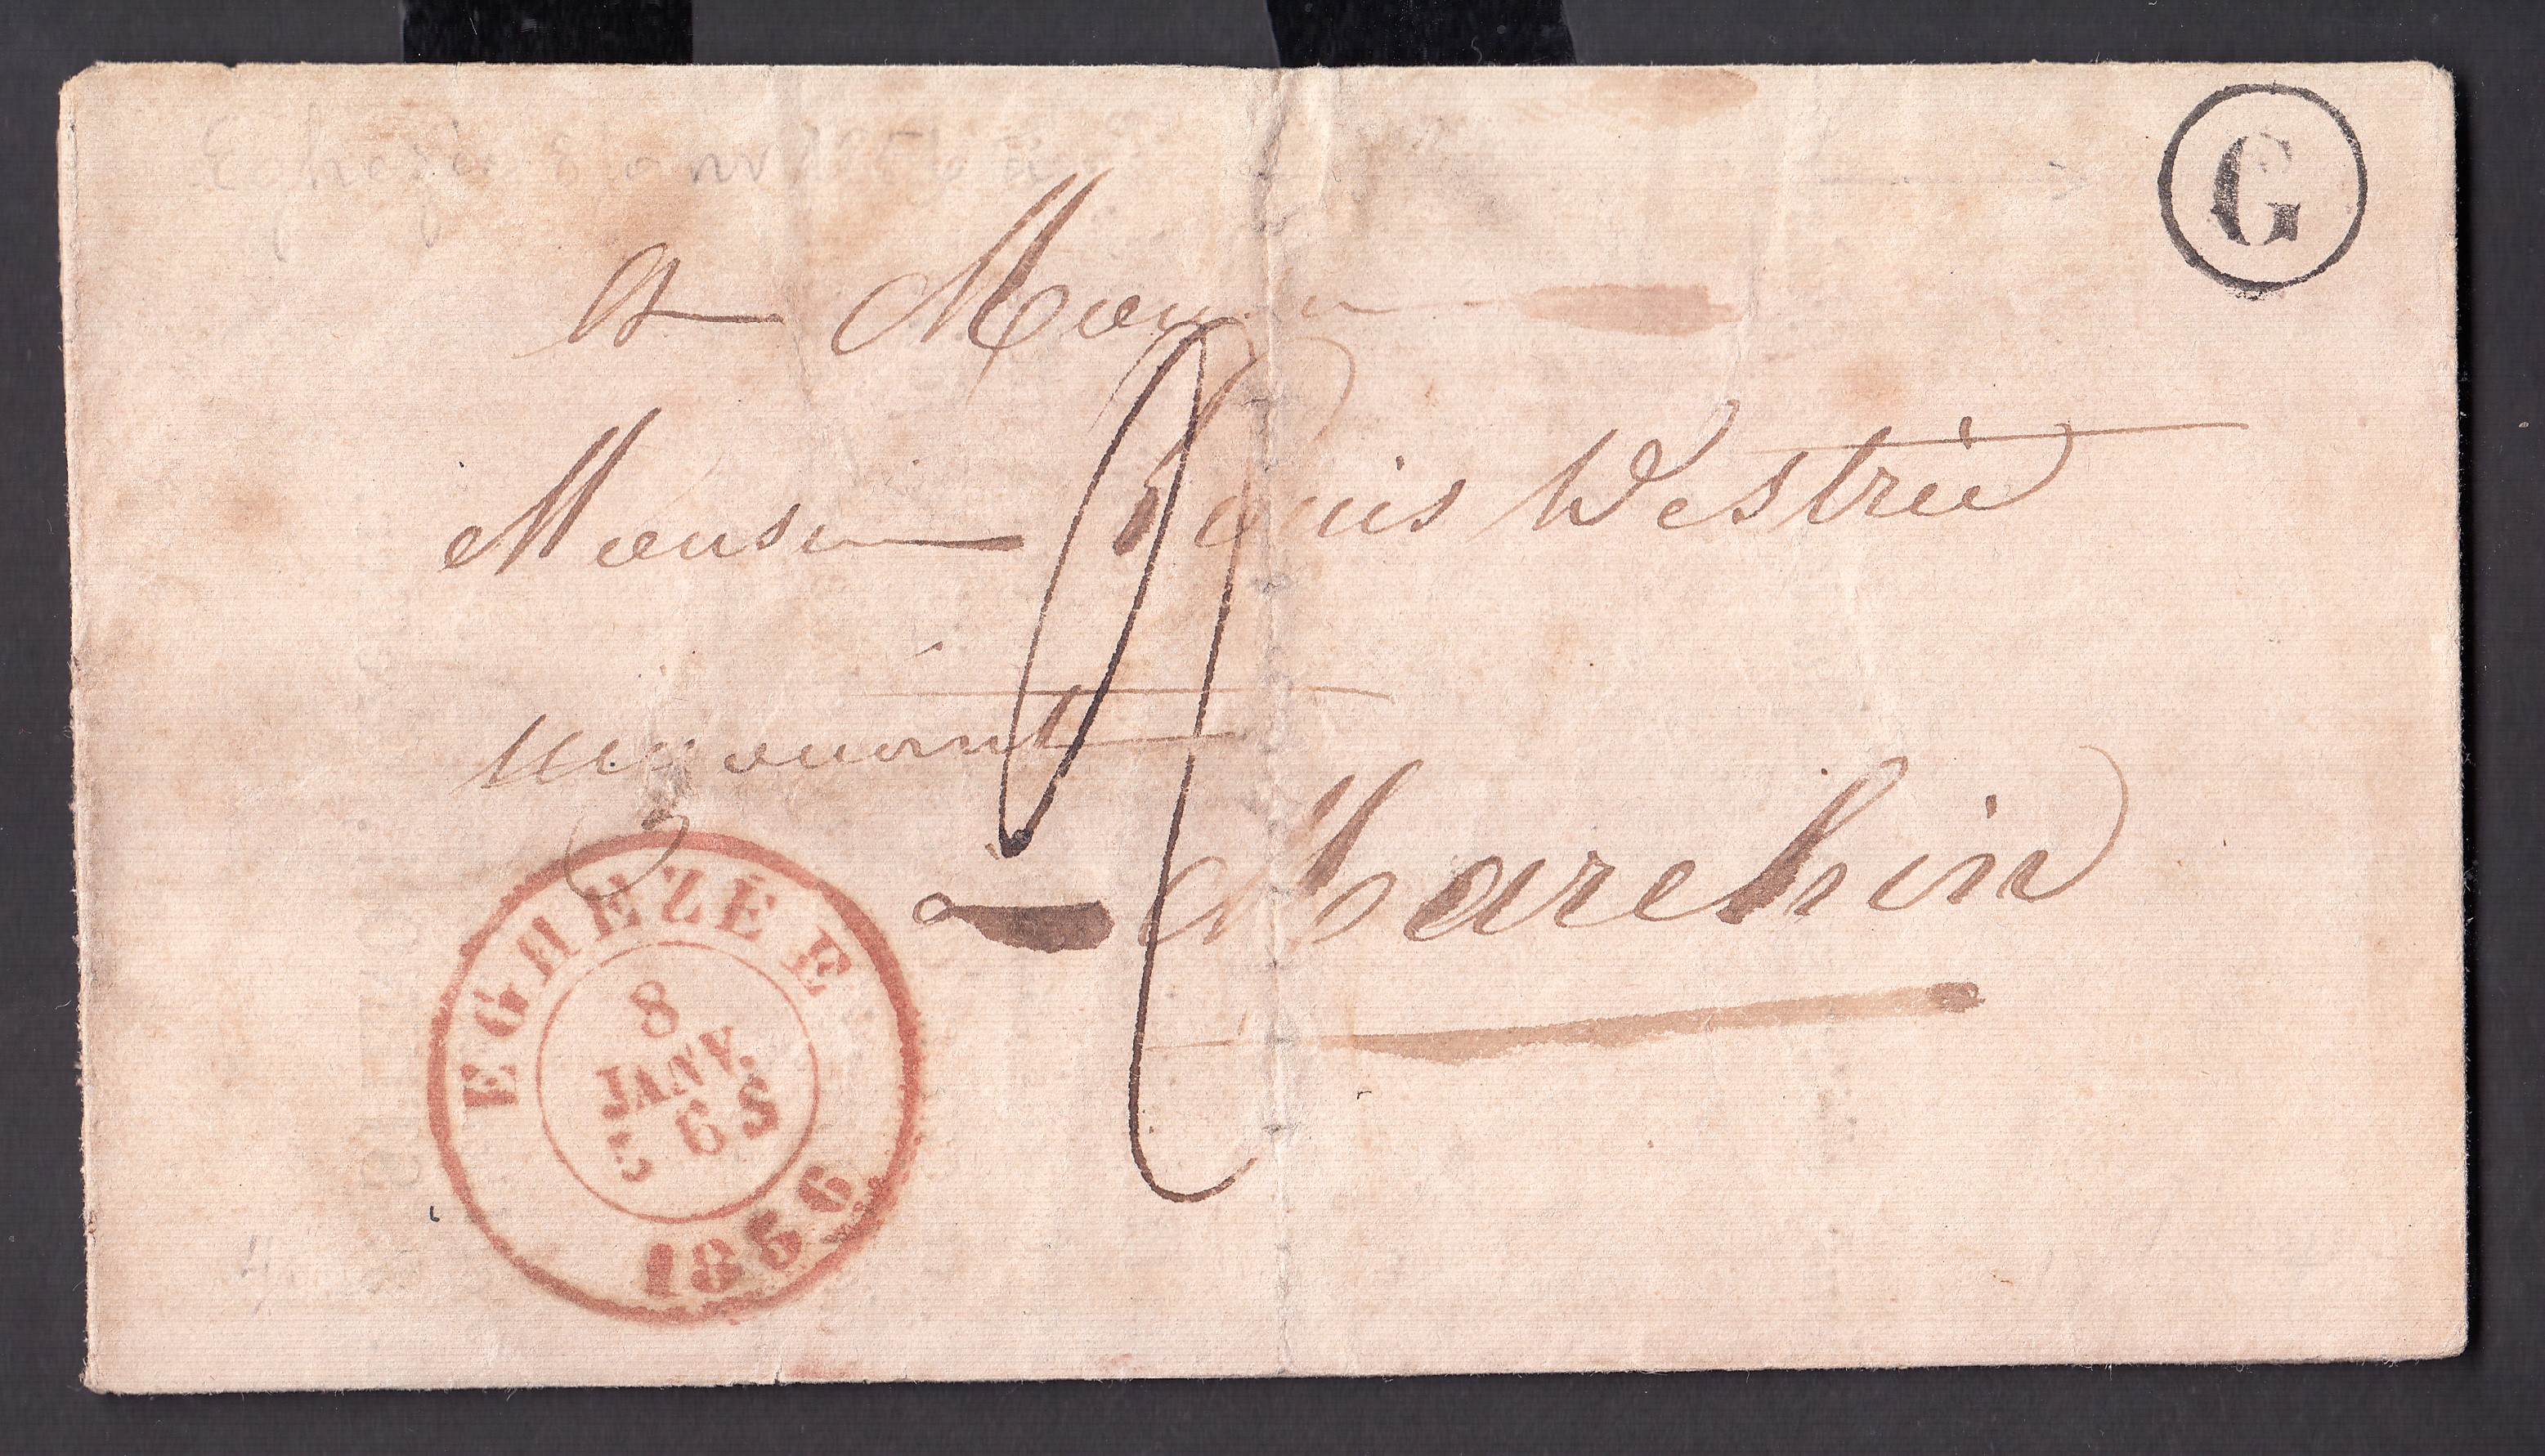 G
A Monsieur
Monsieur Louis Westrée
à Marchin
EGHEZÉE
8
JANV.
5 6 S
1856